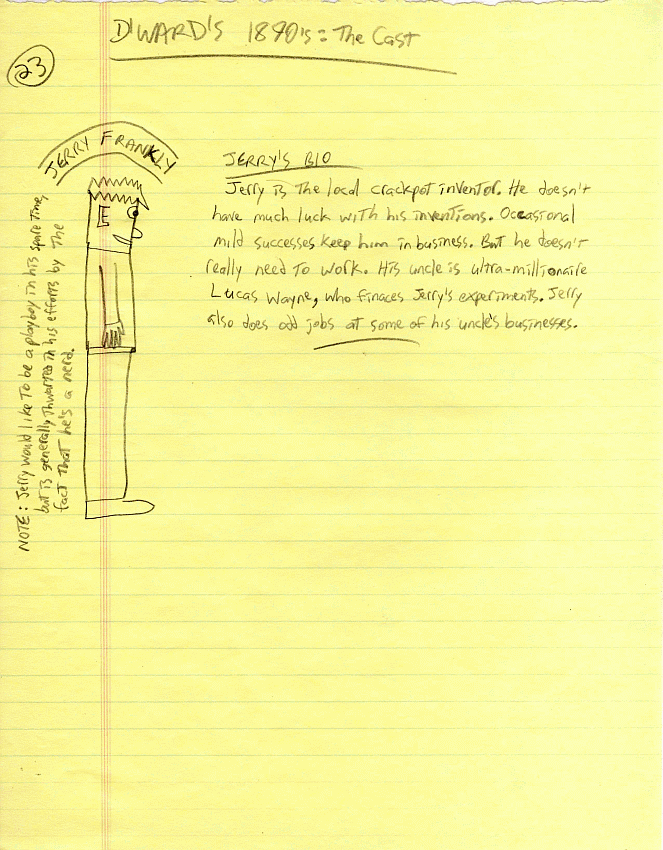 D'WARD'S 1890's: The Cast
23
JERRY FRANKLY
JERRY'S BIO
Jerry is the local crackpot inventor. He doesn't
have much luck with his inventions. Occasional
mild successes keep him in business. But he doesn't
really need to work. His uncle is ultra-millionaire
Lucas Wayne, who finaces Jerry's experiments. Jerry
also does odd jobs at some of his uncle's businesses.
NOTE: Jerry would like to be a playboy in his spare time,
but is generally thwarted in his efforts by the
fact that he's a nerd.